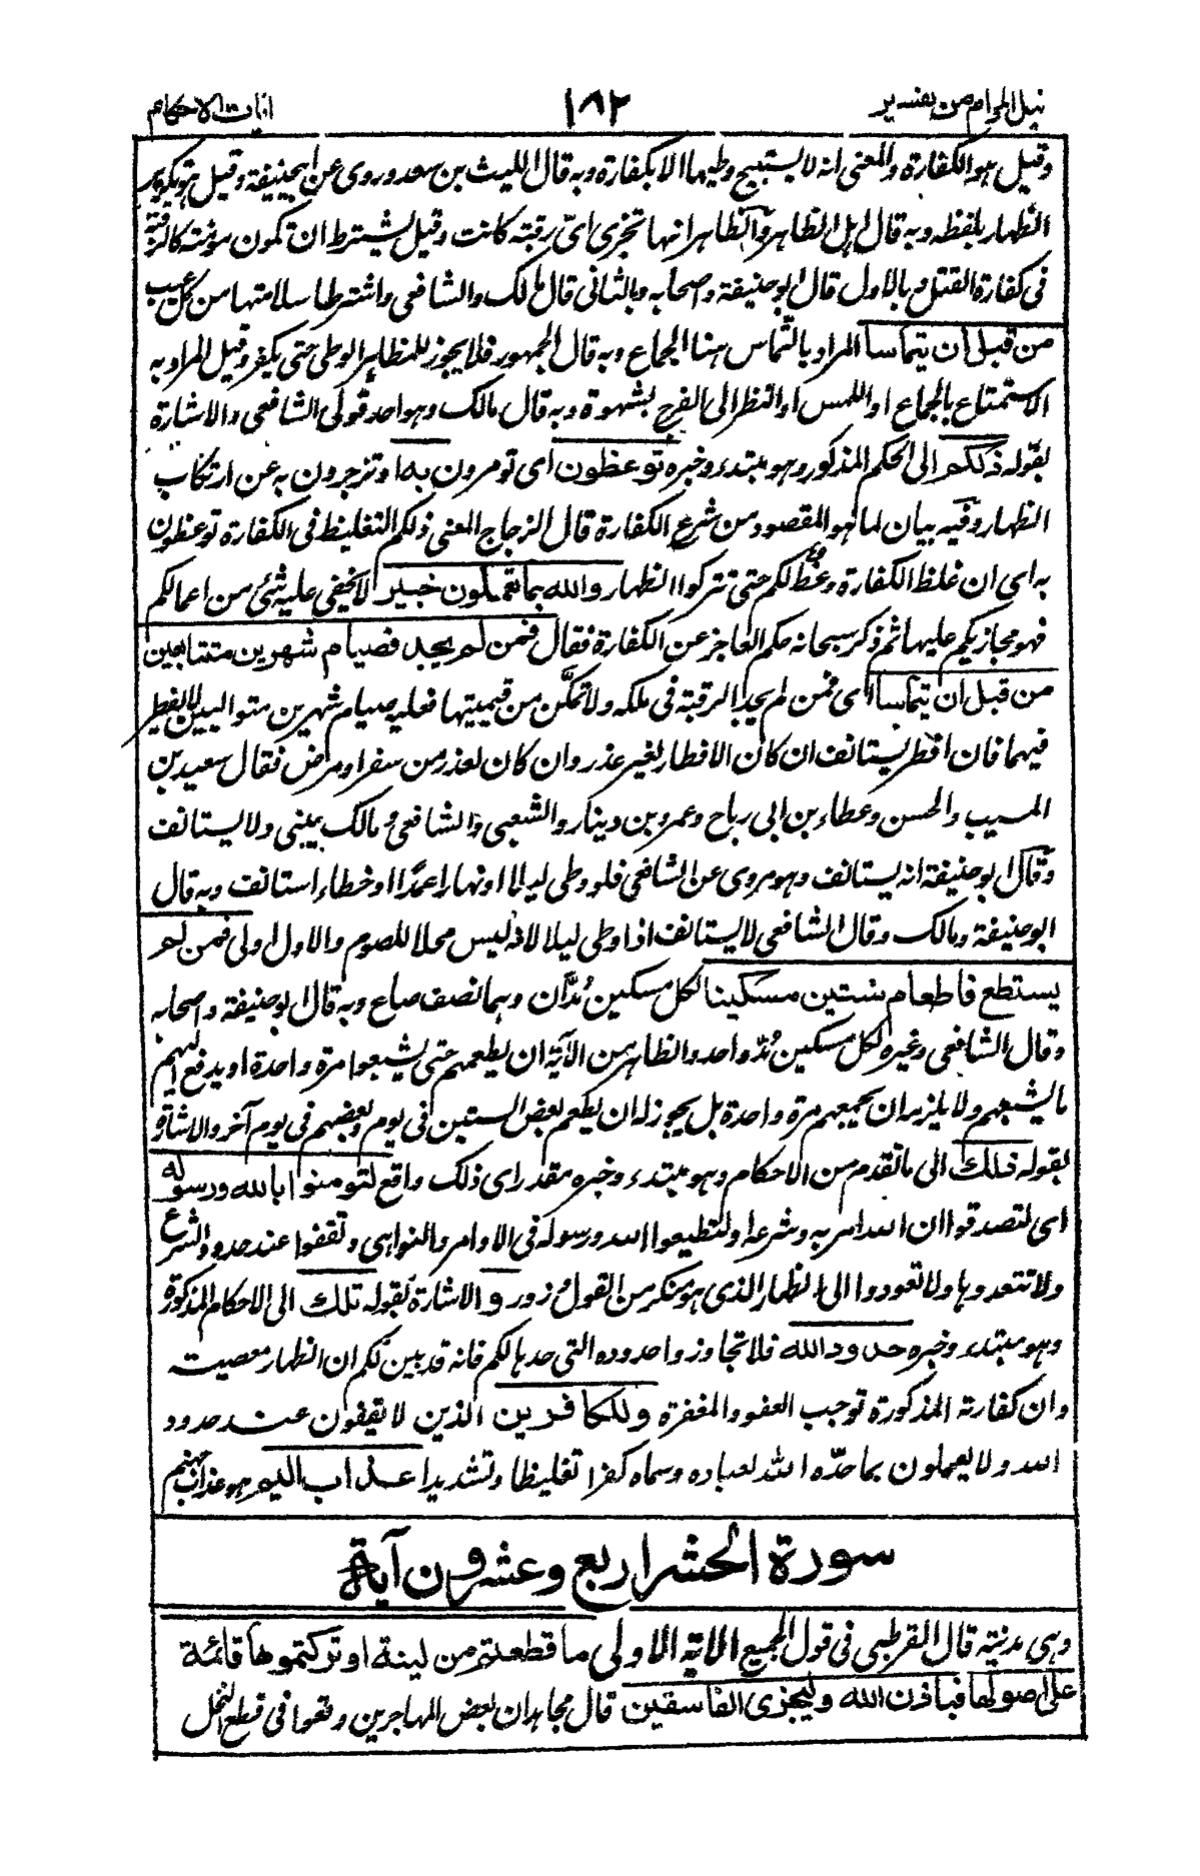 نيل المرام من تفسير ١٨٢ ايات الاحكام
وقيل هو الكفارة والمعنى انه لا يستبيح وطيها الا بكفارة وبه قال الليث بن سعد وروى عن ابيحنيفة وقيل هو تكرير
الظهار بلفظه وبه قال اهل الظاهر والظاهر انها تجزى اىّ رقبة كانت وقيل يشترط ان تكون مؤمنة كالرقبة
فى كفارة القتل وبالاول قال ابو حنيفة واصحابه وبالثانى قال مالك والشافعى واشترطا سلامتها من كل عيب
من قبل ان يتماسا المراد بالتماس هنا الجماع وبه قال الجمهور فلا يجوز للمظاهر الوطى حتى يكفر وقيل المراد به
الاستمتاع بالجماع او اللمس او النظر الى الفرج بشهوة وبه قال مالك وهو احد قولى الشافعى والاشارة
بقوله ذلكم الى الحكم المذكور وهو مبتدء وخبره توعظون اى تومرون به او تزجرون به عن ارتكاب
الظهار وفيه بيان لما هو المقصود من شرع الكفارة قال الزجاج المعنى ذلكم التغليظ فى الكفارة توعظون
به اى ان غلظ الكفارة وعظ لكم حتى تتركوا الظهار والله بما تعملون خبير لا يخفى عليه شئ من اعمالكم
فهو مجازيكم عليها ثم ذكر سبحانه حكم العاجز عن الكفارة فقال فمن لم يجد فصيام شهرين متتابعين
من قبل ان يتماسا اى فمن لم يجد الرقبة فى ملكه ولا تمكّن من قيمتها فعليه صيام شهرين متواليين لا يفطر
فيهما فان افطر يستانف ان كان الافطار لغير عذر وان كان لعذر من سفر او مرض فقال سعيد بن
المسيب والحسن وعطاء بن ابى رباح وعمرو بن دينار والشعبى والشافعى ومالك يبنى ولا يستانف
وقال ابو حنيفة انه يستانف وهو مروى عن الشافعى فلو وطى ليلا او نهارا عمدًا او خطاء استانف وبه قال
ابو حنيفة ومالك وقال الشافعى لا يستانف اذا وطى ليلا لانه ليس محلا للصوم والاول اولى فمن لم
يستطع فاطعام ستين مسكينا لكل مسكين مُدّان وهما نصف صاع وبه قال ابو حنيفة واصحابه
وقال الشافعى وغيره لكل مسكين مُدّ واحد والظاهر من الآية ان يطعمهم حتى يشبعوا مرة واحدة او يدفع اليهم
ما يشبعهم ولا يلزمه ان يجمعهم مرة واحدة بل يجوز له ان يطعم بعض الستين فى يوم وبعضهم فى يوم آخر والاشارة
بقوله ذلك الى ما تقدم من الاحكام وهو مبتدء وخبره مقدر اى ذلك واقع لتومنوا بالله ورسوله
اى لتصدقوا ان الله امر به وشرعه او لتطيعوا الله ورسوله فى الاوامر والنواهى وتقفوا عند حدود الشرع
ولا تتعدوها ولا تعودوا الى الظهار الذى هو منكر من القول وزور والاشارة بقوله تلك الى الاحكام المذكورة
وهو مبتدء وخبره حدود الله فلا تجاوزوا حدوده التى حدها لكم فانه قد بين لكم ان الظهار معصية
وان كفارته المذكورة توجب العفو والمغفرة وللكافرين الذين لا يقفون عند حدود
الله ولا يعملون بما حدّه الله لعباده وسماه كفرا تغليظا وتشديدا عذاب اليم هو عذاب جهنم
سورة الحشر اربع وعشرون آية
وهى مدنية قال القرطبى فى قول الجميع الاية الاولى ما قطعتم من لينة او تركتموها قائمة
على اصولها فباذن الله وليجزى الفاسقين قال مجاهد ان بعض المهاجرين وقعوا فى قطع النخل